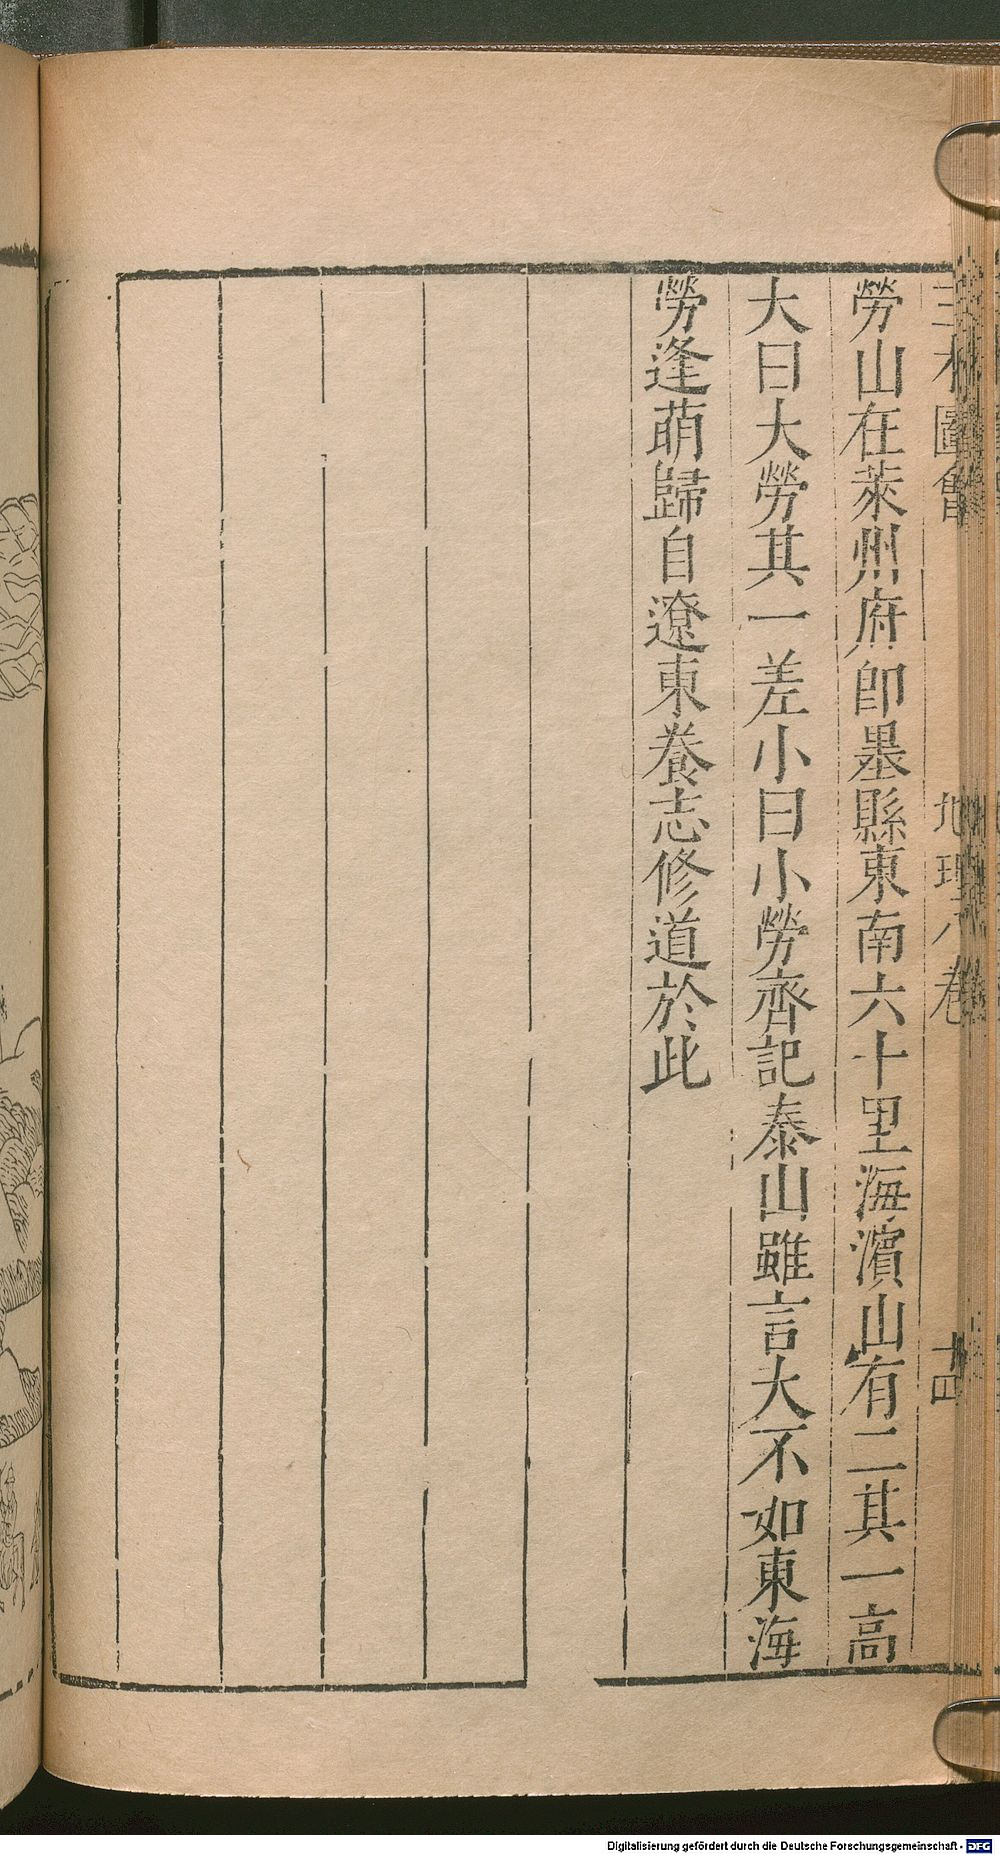 三才圖會 地理八卷 十四
勞山在萊州府卽墨縣東南六十里海濱山有二其一高
大曰大勞其一差小曰小勞齊記泰山雖言大不如東海
勞逢萌歸自遼東養志修道於此
Digitalisierung gefördert durch die Deutsche Forschungsgemeinschaft - DFG